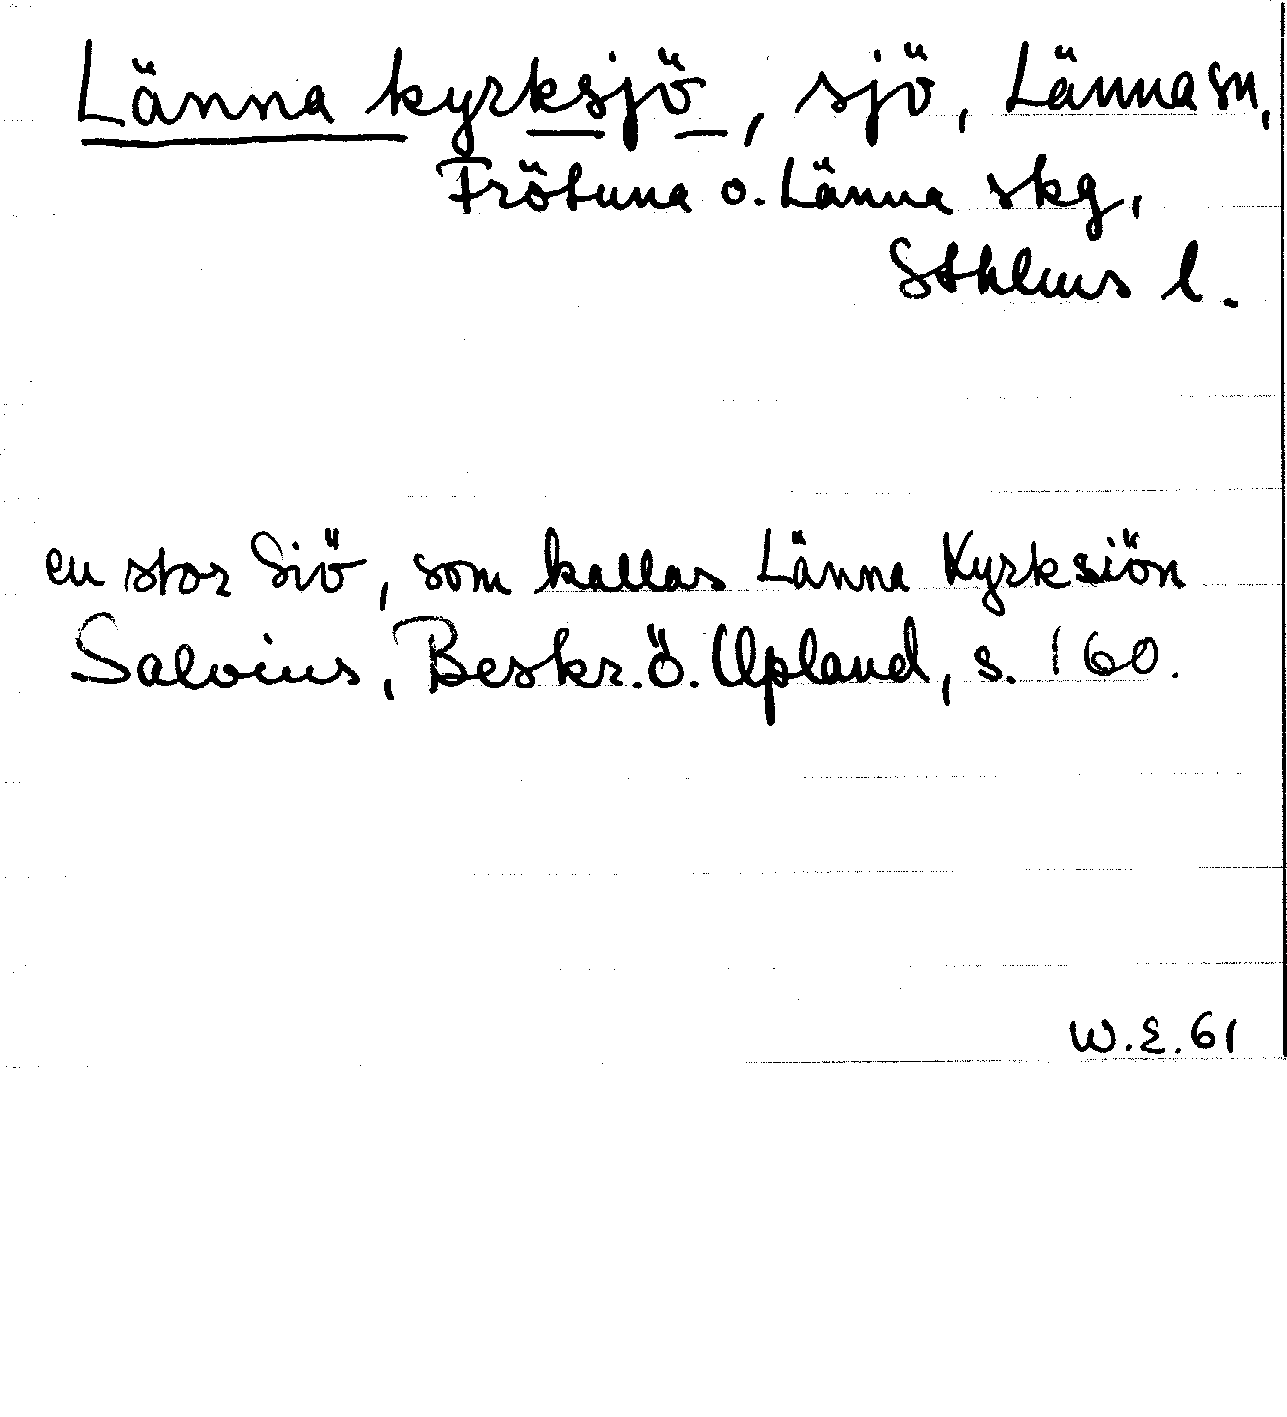 Länna kyrksjö, sjö, Länna sn,
Frötuna o. Länna skg,
Sthlms l.
en stor Siö, som kallas Länna Kyrksiön
Salvius, Beskr. ö. Upland, s. 160.
W.E.61